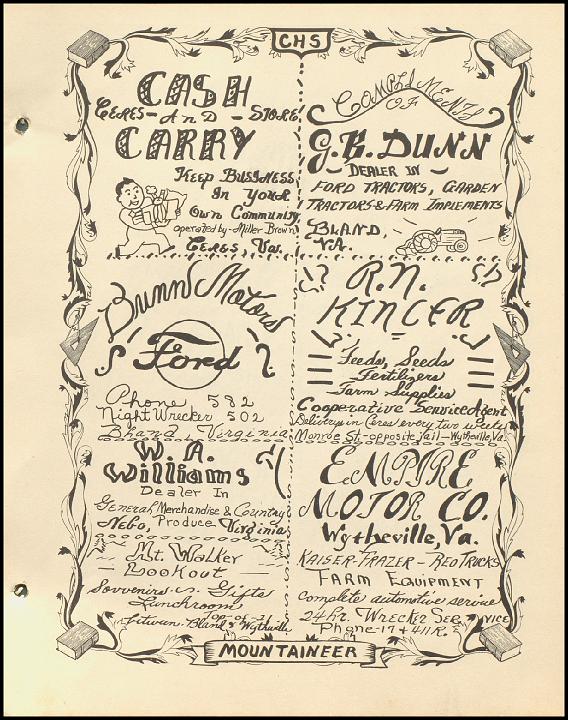 CHS
CASH
CERES - AND - STORE
CARRY
KEEP BUSINESS
IN YOUR
OWN COMMUNITY
operated by - Miller Brown
CERES, VA.
COMPLIMENTS
OF
G.B. DUNN
DEALER IN
FORD TRACTORS, GARDEN
TRACTORS & FARM IMPLEMENTS
BLAND
VA.
Dunn Motors
Ford
Phone 582
Night Wrecker 502
Bland Virginia
R.N.
KINCER
Feeds, Seeds
Fertilizers
Farm Supplies
Cooperative Service Agent
in Ceres every two weeks
Monroe St. - opposite Jail - Wytheville, Va.
W. A.
Williams
Dealer In
General Merchandise & Country
Nebo, Produce Virginia
Mt. Walker
Lookout
Souvenirs Gifts
Lunchroom
Top of
Bland & Wytheville
EMPIRE
MOTOR CO.
Wytheville, Va.
KAISER-FRAZER - REO TRUCKS
FARM EQUIPMENT
complete automotive service
24 hr. WRECKER SERVICE
Phone - 17 & 411 R.
MOUNTAINEER